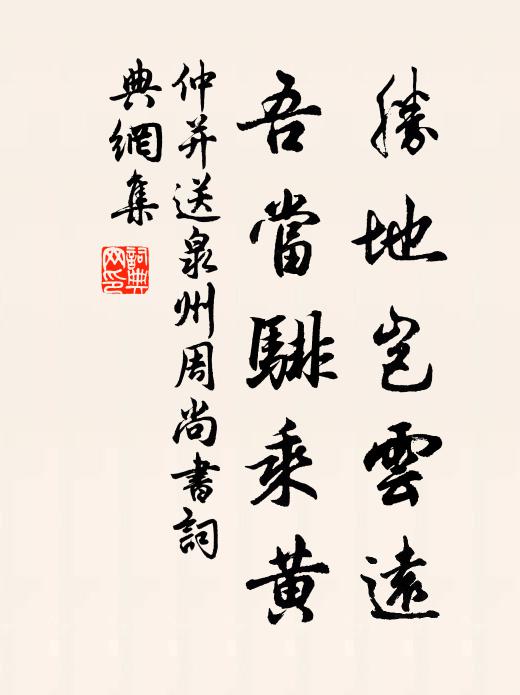 勝地豈雲遠
吾當騑乘黄
仲并送泉州周尚書詞
典網集
詞典網印